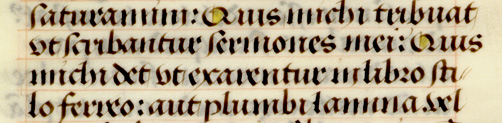 saturamini: Quis michi tribuat
vt scribantur sermones mei: Quis
michi det vt exarentur in libro sti
lo ferreo: aut plumbi lamina. vel